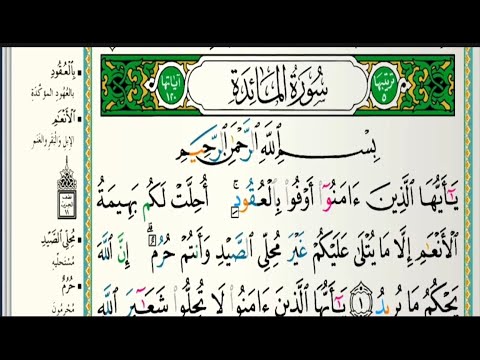 ترتيبها ٥
سُورَةُ المَائِدَةِ
آياتها ١٢٠
بِسْمِ ٱللَّهِ ٱلرَّحْمَٰنِ ٱلرَّحِيمِ
يَٰٓأَيُّهَا ٱلَّذِينَ ءَامَنُوٓا۟ أَوْفُوا۟ بِٱلْعُقُودِ ۚ أُحِلَّتْ لَكُم بَهِيمَةُ
ٱلْأَنْعَٰمِ إِلَّا مَا يُتْلَىٰ عَلَيْكُمْ غَيْرَ مُحِلِّى ٱلصَّيْدِ وَأَنتُمْ حُرُمٌ ۗ إِنَّ ٱللَّهَ
يَحْكُمُ مَا يُرِيدُ ١ يَٰٓأَيُّهَا ٱلَّذِينَ ءَامَنُوا۟ لَا تُحِلُّوا۟ شَعَٰٓئِرَ ٱللَّهِ
بِالْعُقُودِ
بالعُهُودِ المؤكّدَةِ
الْأَنْعَٰمِ
الإبل والبَقَر والغنَم
مُحِلِّي الصَّيْدِ
مُسْتَحِلّيهِ
حُرُمٌ
مُحْرِمُونَ